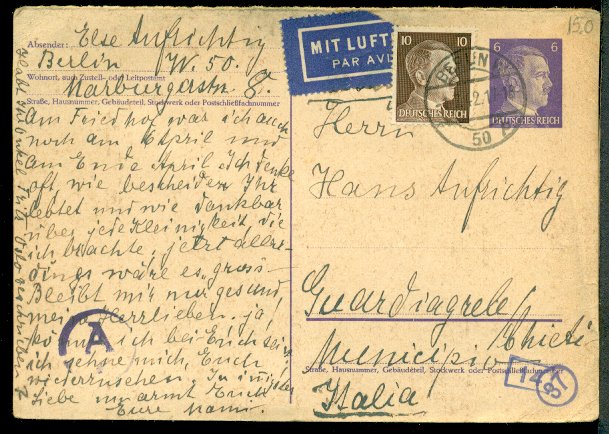 Absender: Else Aufrichtig
Berlin W. 50.
Wohnort, auch Zustell- oder Leitpostamt
Marburgerstr. 8.
Straße, Hausnummer, Gebäudeteil, Stockwerk oder Postschließfachnummer
Am Friedhof war ich auch
noch am April und
am Ende April. Ich denke
oft wie bescheiden Ihr
lebtet und wie dankbar
über jede Kleinigkeit, die
ich brachte, jetzt aller-
dings wäre es gross
Bleibt mir nur gesund,
meine Herzlieben. ja,
könnte ich bei Euch sein
ich sehne mich, Euch
wiederzusehen. In
Liebe umarmt Euch
Eure Mama.
Onkel
A
MIT LUFTP
PAR AVI
10 10
DEUTSCHES REICH
BERLIN W
50
6 6
DEUTSCHES REICH
150
Herrn
Hans Aufrichtig
Guardiagrele/
Chieti
Municipio
Straße, Hausnummer, Gebäudeteil, Stockwerk oder Postschließfachnummer
Italia